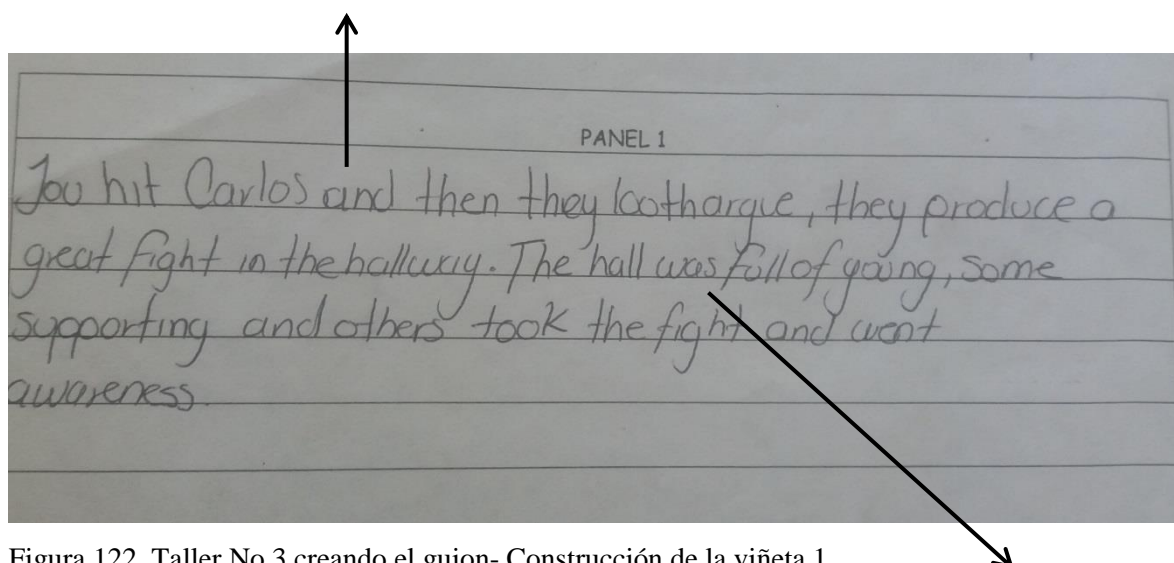 PANEL 1
Jou hit Carlos and then they bothargue, they produce a
great fight in the hallway. The hall was full of going, some
supporting and others took the fight and went
awareness.
Figura 122. Taller No 3 creando el guion- Construcción de la viñeta 1